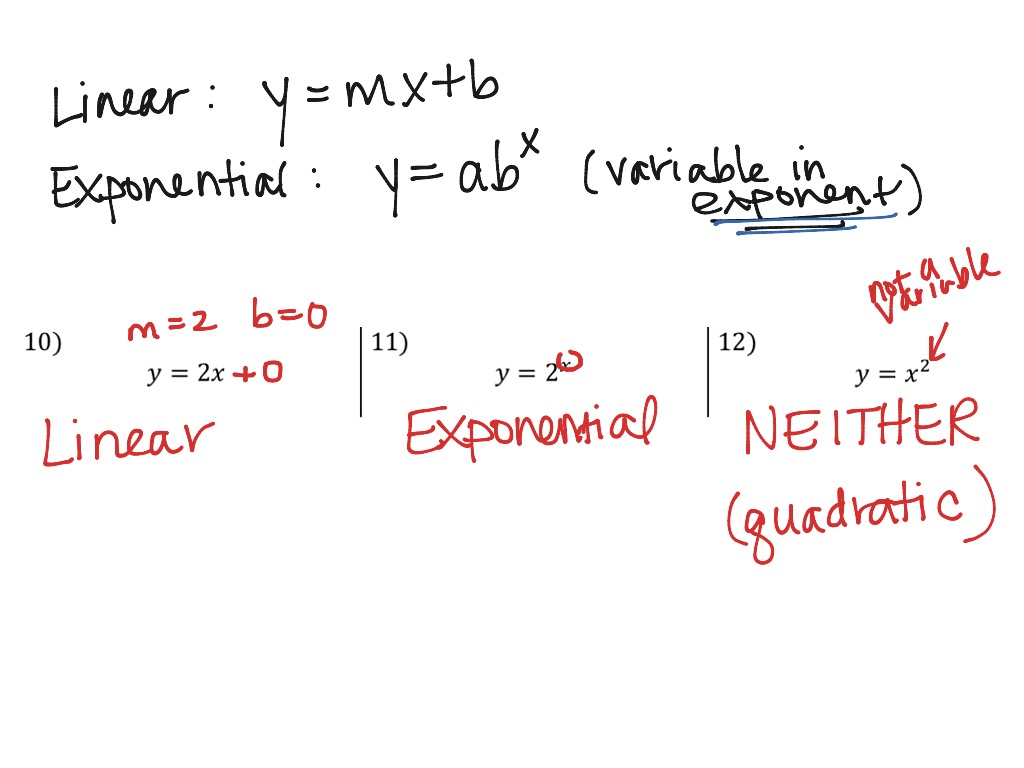 Linear: y = mx+b
Exponential: y = ab^x (variable in
exponent)
not a
variable
m=2 b=0
10) 11) 12)
y = 2x +0 y = 2^x y = x²
Linear Exponential NEITHER
(quadratic)